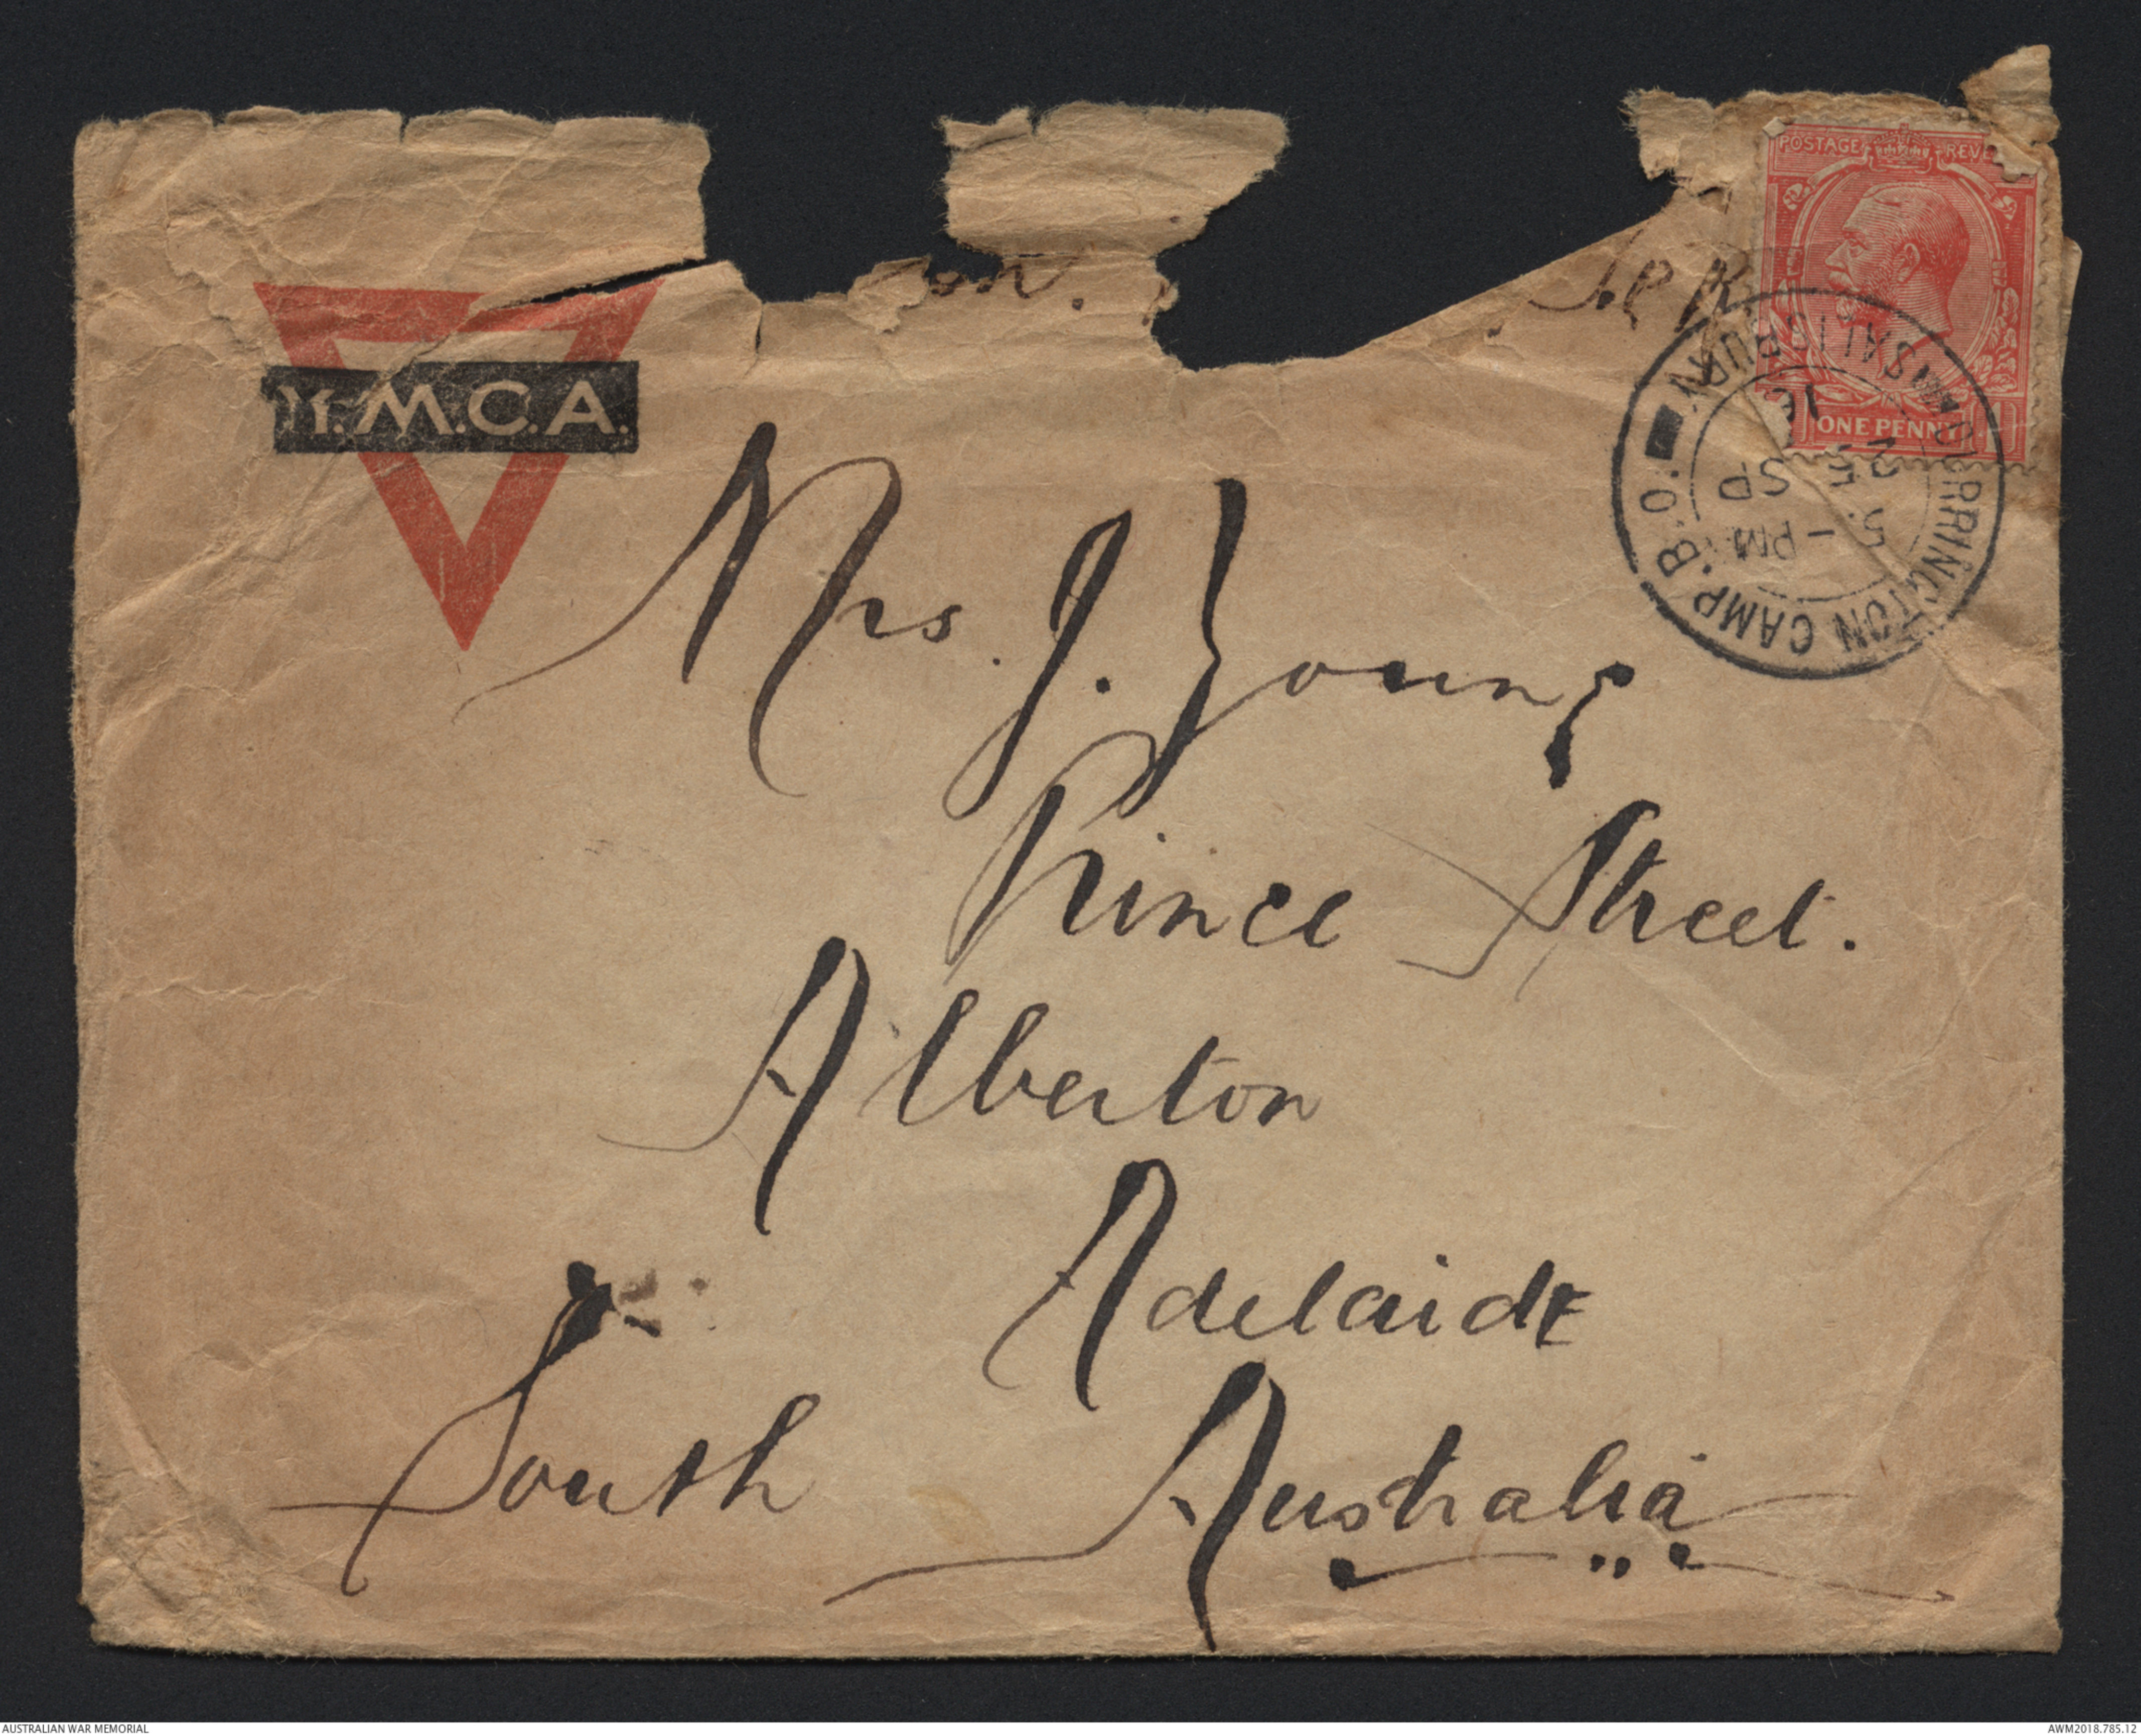 on.
Y.M.C.A.
POSTAGE REVE
ONE PENNY
DURRINGTON CAMP. B.O.
SALISBURY
5 - PM
SP
Mrs. J. Young
Prince Street.
Alberton
Adelaide
South Australia
AUSTRALIAN WAR MEMORIAL
AWM2018.785.12